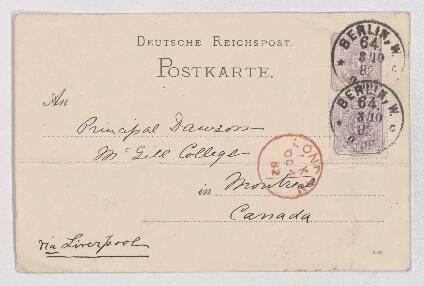 DEUTSCHE REICHSPOST.
POSTKARTE.
BERLIN, W.
64
8/10
BERLIN, W.
64
8/10
An
Principal Dawson
McGill College
in Montreal
Canada
via Liverpool
OC
82